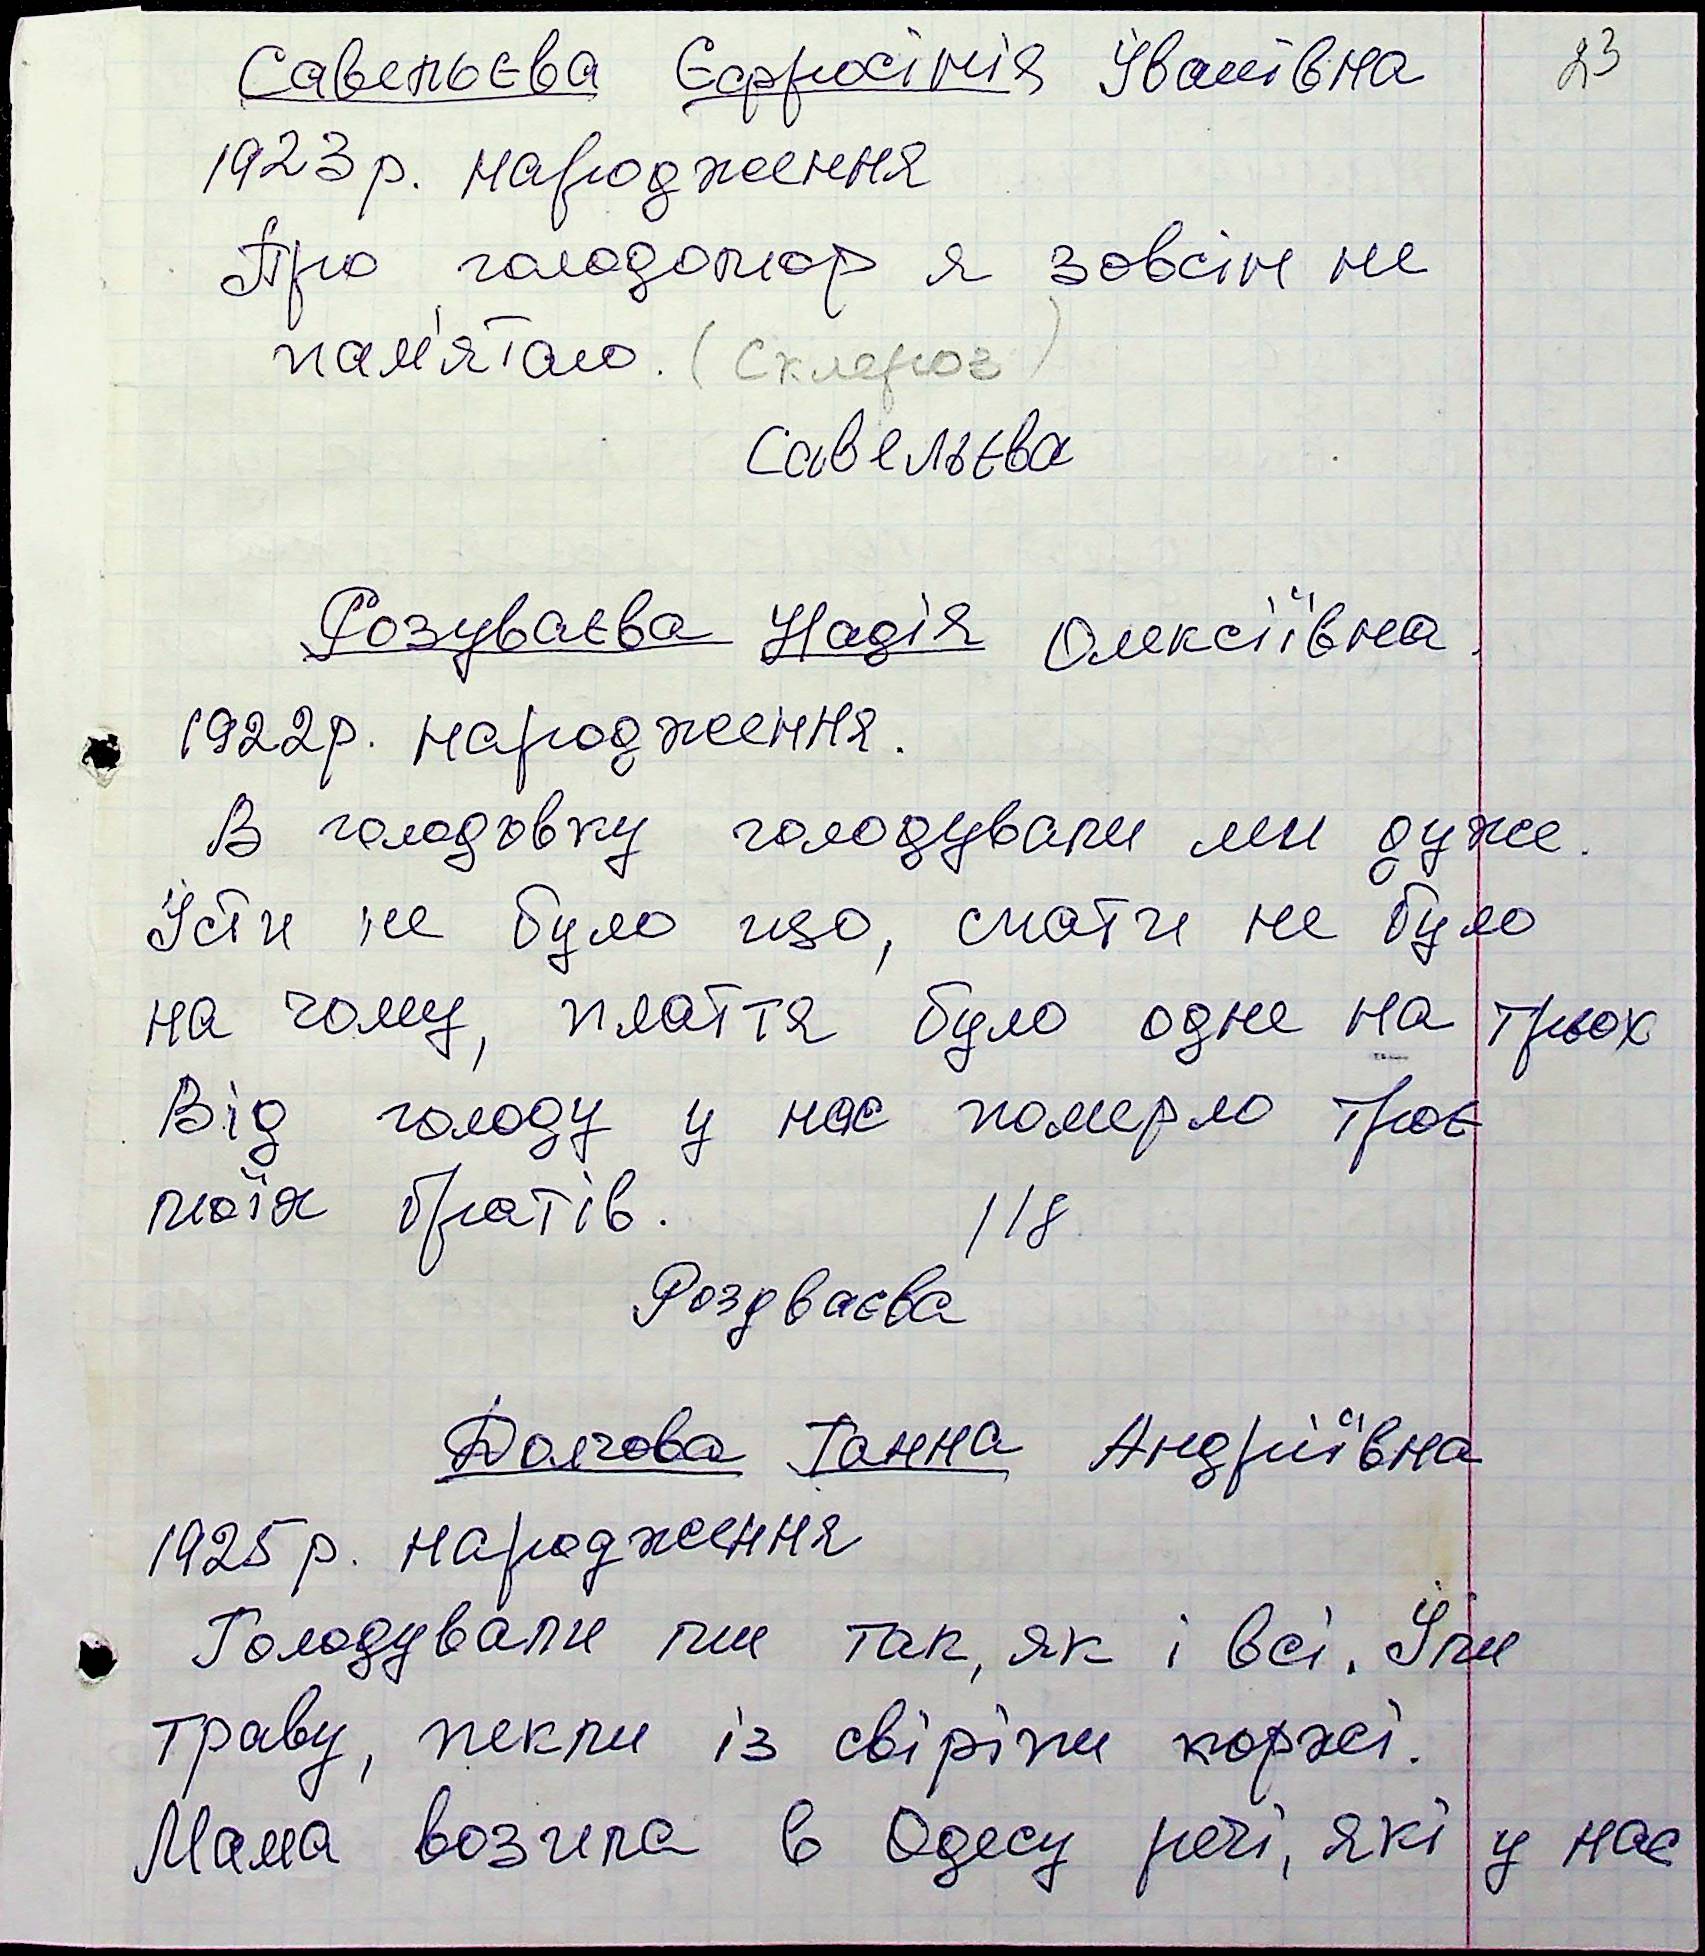 23
Савельєва Єфросінія Іванівна
1923 р. народження
Про голодомор я зовсім не
пам'ятаю. (Склероз)
Савельєва
Розуваєва Надія Олексіївна.
1922 р. народження.
В голодовку голодували ми дуже.
Їсти не було що, спати не було
на чому, плаття було одне на трьох
Від голоду у нас померло троє
моїх братів. 118
Роздваєва
Долгова Ганна Андріївна
1925 р. народження
Голодували ми так, як і всі. Їли
траву, пекли із свіріпи коржі.
Мама возила в Одесу речі, які у нас